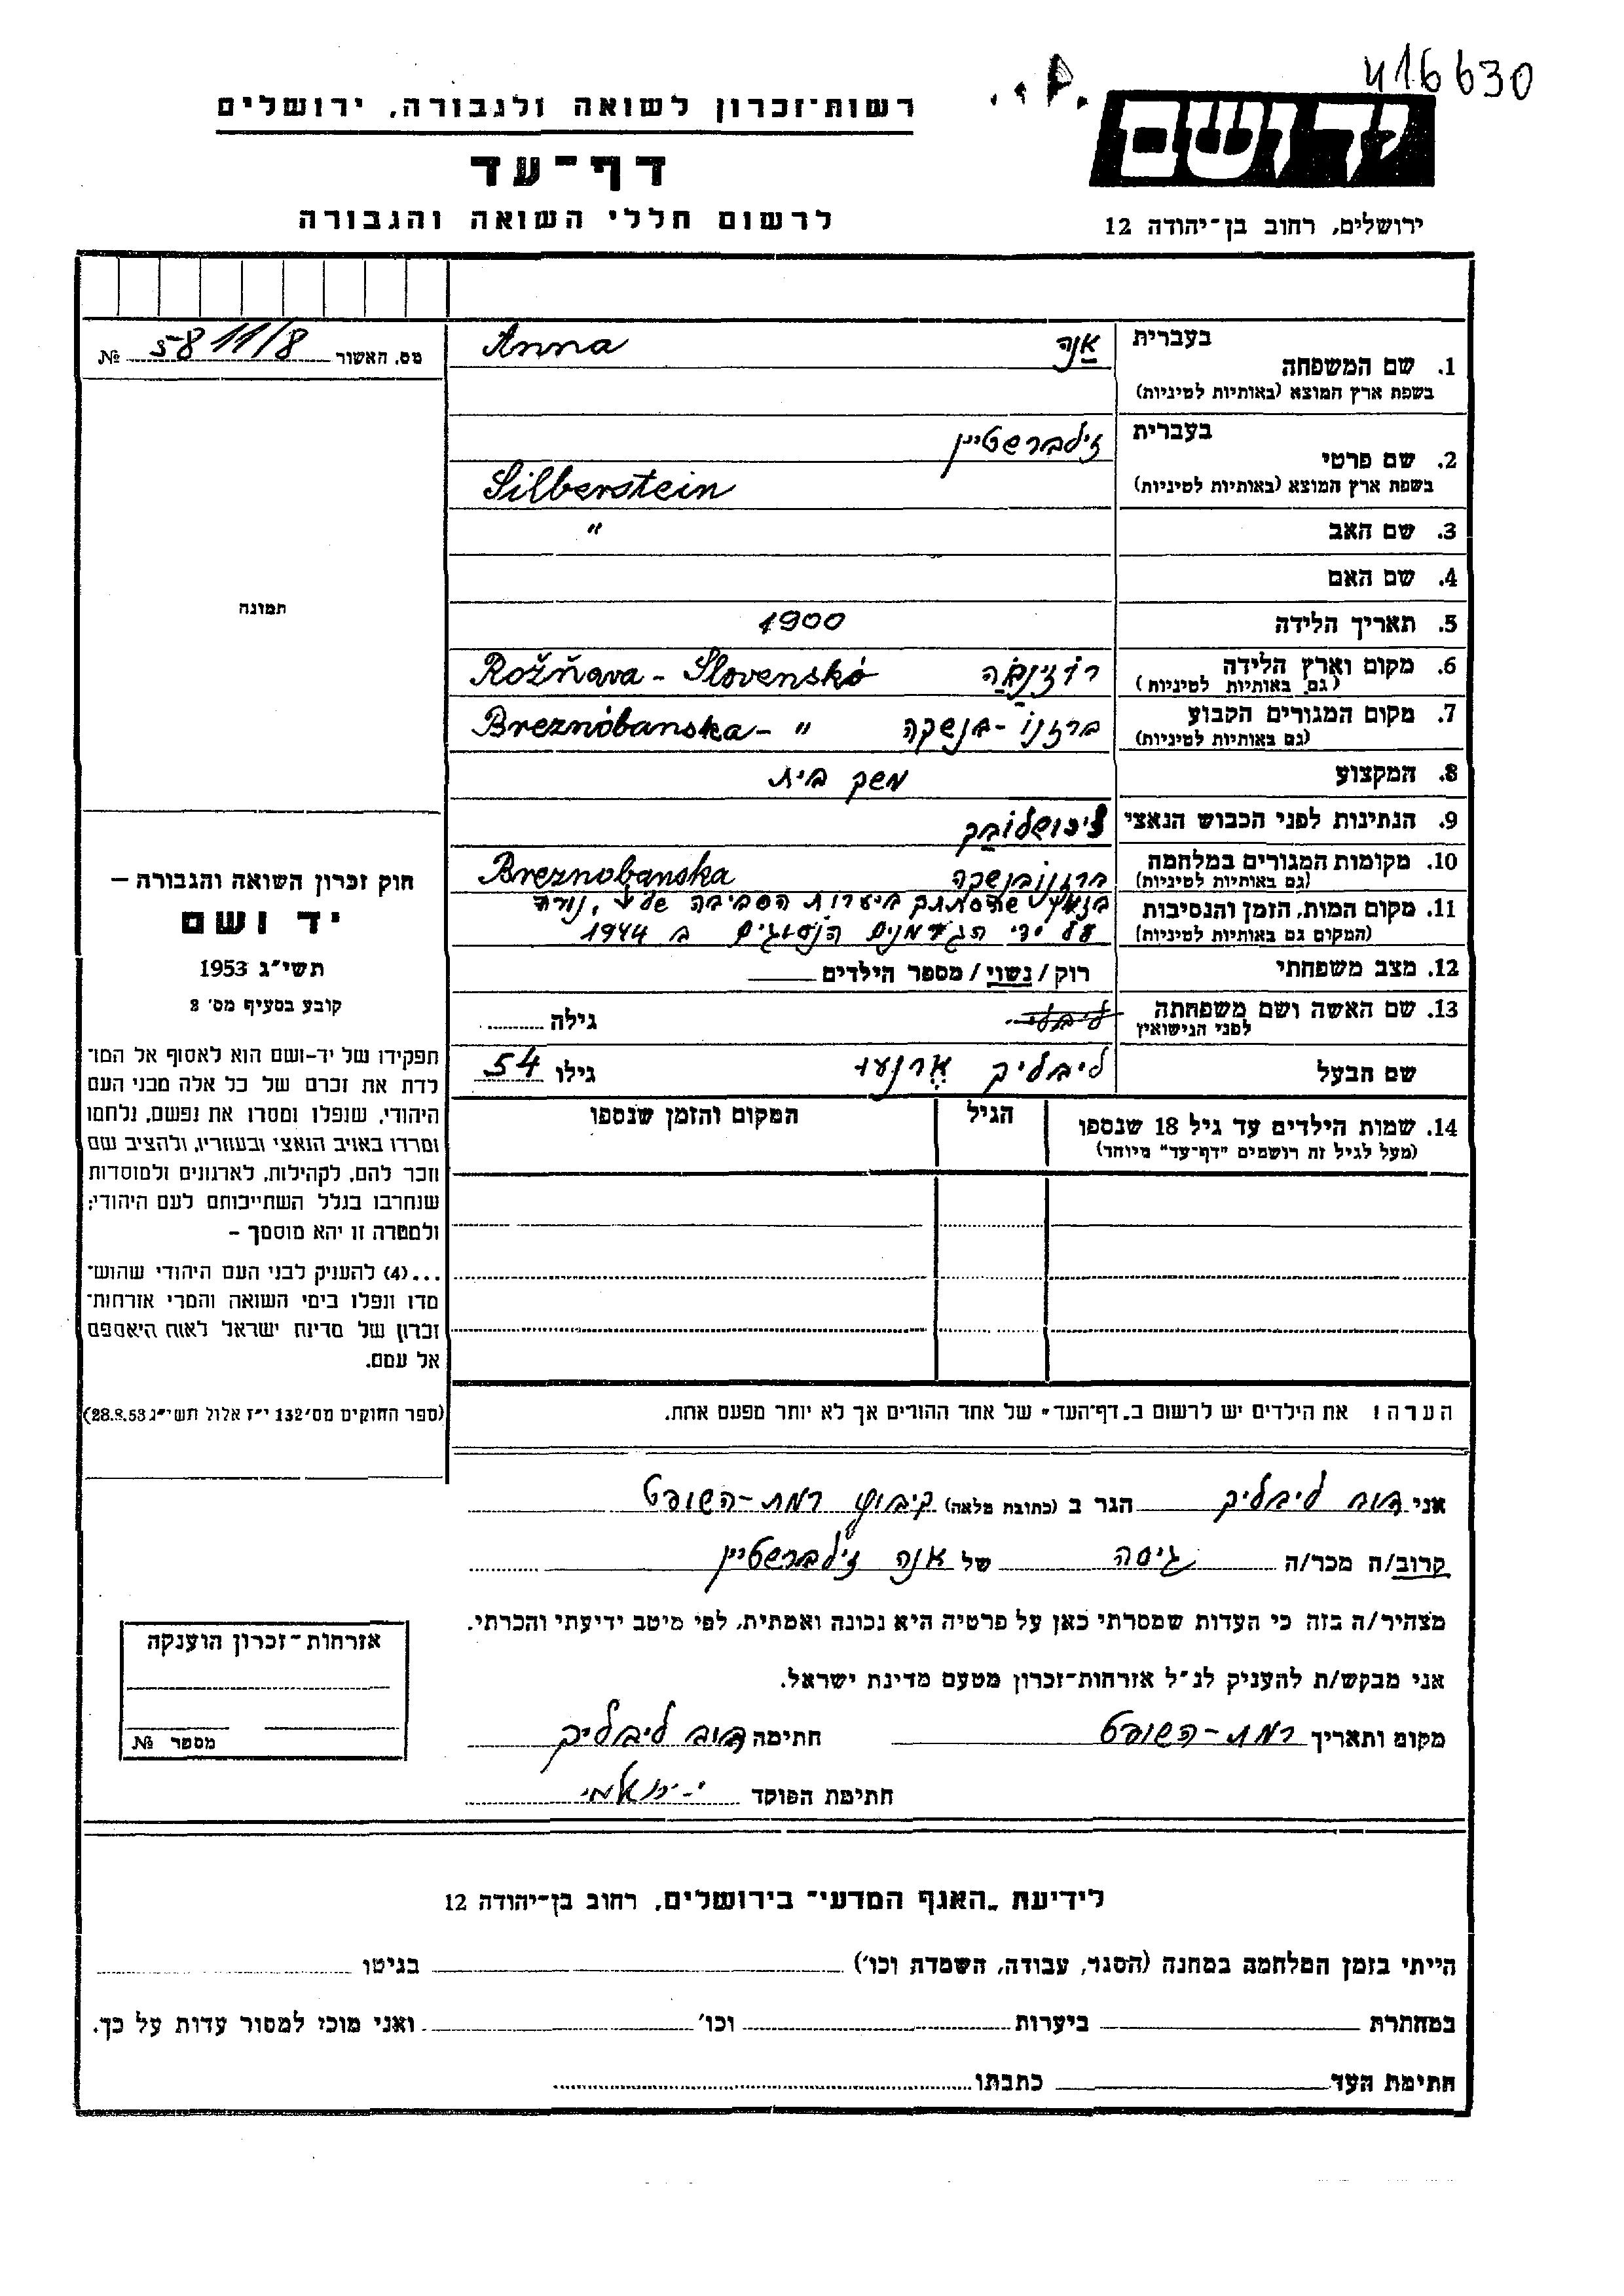 416630
רשות־זכרון לשואה ולגבורה, ירושלים
דף־עד
לרשום חללי השואה והגבורה
ידושם
ירושלים, רחוב בן־יהודה 12
מס. האשור 5811/8 №
1. שם המשפחה בעברית אנה
בשפת ארץ המוצא (באותיות לטיניות) Anna
2. שם פרטי בעברית זילברשטיין
בשפת ארץ המוצא (באותיות לטיניות) Silberstein
3. שם האב "
4. שם האם
5. תאריך הלידה 1900
6. מקום וארץ הלידה רוז'נבה Rožňava - Slovenskó
(גם באותיות לטיניות)
7. מקום המגורים הקבוע ברזנו - בנשקה Breznóbanska - "
(גם באותיות לטיניות)
8. המקצוע משק בית
9. הנתינות לפני הכבוש הנאצי צ'כושלובק
10. מקומות המגורים במלחמה ברזנובנשקה Breznobanska
(גם באותיות לטיניות)
11. מקום המות, הזמן והנסיבות שהסתתב ביערות הסביבה נורה
(המקום גם באותיות לטיניות) על ידי הגרמנים הנסוגים ב 1944
12. מצב משפחתי רוק / נשוי / מספר הילדים
13. שם האשה ושם משפחתה גילה
לפני הנישואין
שם הבעל ליבליק ארנעו גילו 54
14. שמות הילדים עד גיל 18 שנספו הגיל המקום והזמן שנספו
(מעל לגיל זה רושמים "דף־עד" מיוחד)
הערה! את הילדים יש לרשום ב„דף־העד" של אחד ההורים אך לא יותר מפעם אחת.
תמונה
חוק זכרון השואה והגבורה –
יד ושם
תשי"ג 1953
קובע בסעיף מס' 2
תפקידו של יד-ושם הוא לאסוף אל המו־
לדת את זכרם של כל אלה מבני העם
היהודי, שנפלו ומסרו את נפשם, נלחמו
ומרדו באויב הנאצי ובעוזריו, ולהציב שם
וזכר להם, לקהילות, לארגונים ולמוסדות
שנחרבו בגלל השתייכותם לעם היהודי;
ולמטרה זו יהא מוסמך –
...(4) להעניק לבני העם היהודי שהוש־
מדו ונפלו בימי השואה והמרי אזרחות־
זכרון של מדינת ישראל לאות היאספם
אל עמם.
(ספר החוקים מס' 132 י"ז אלול תשי"ג 28.8.53)
אני דוב ליבליק הגר ב (כתובת מלאה) קיבוץ רמת-השופט
קרוב/ה מכר/ה גיסה של אנה זילברשטיין
מצהיר/ה בזה כי העדות שמסרתי כאן על פרטיה היא נכונה ואמתית, לפי מיטב ידיעתי והכרתי.
אני מבקש/ת להעניק לנ"ל אזרחות-זכרון מטעם מדינת ישראל.
מקום ותאריך רמת-השופט חתימה דוב ליבליק
חתימת הפוקד
אזרחות־זכרון הוענקה
מספר №
לידיעת „האגף המדעי" בירושלים, רחוב בן-יהודה 12
הייתי בזמן המלחמה במחנה (הסגר, עבודה, השמדה וכו') בגיטו
במחתרת ביערות וכו' ואני מוכז למסור עדות על כך.
חתימת העד כתבתו